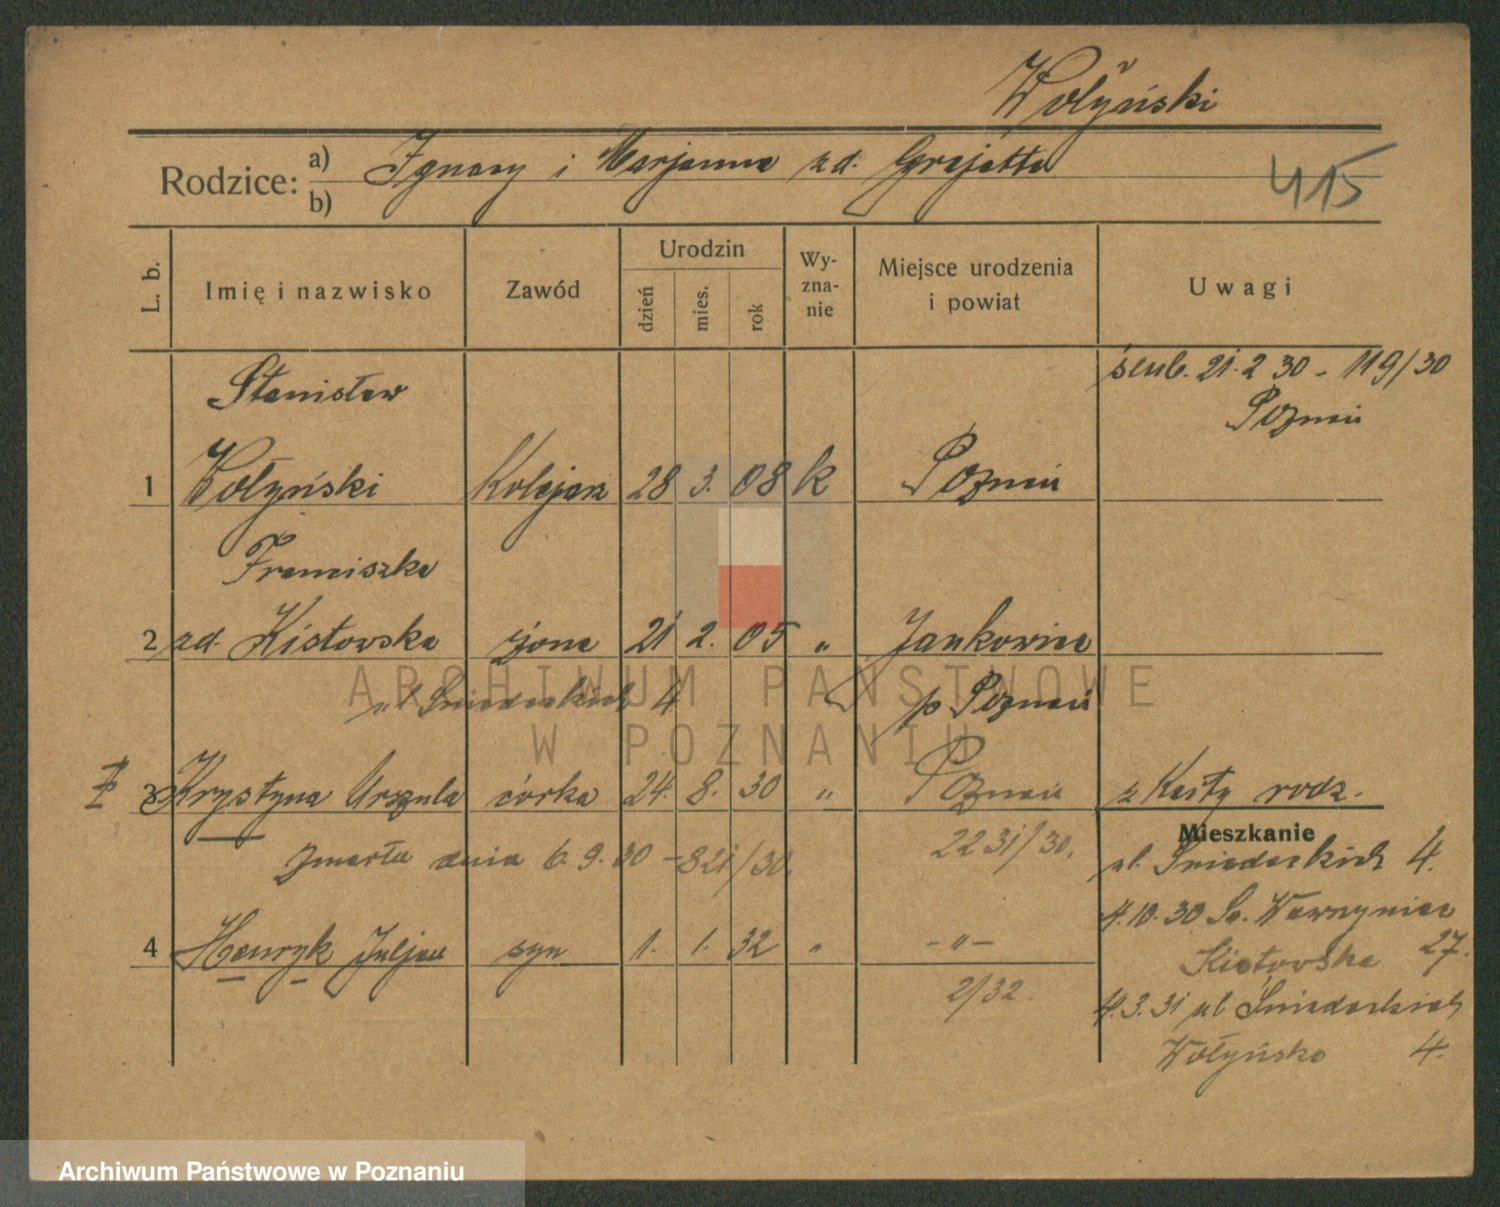 Wołyński
Rodzice: a) Ignacy i Marjanna zd. Grajetta
b)
415
L. b. Imię i nazwisko Zawód Urodzin dzień mies. rok Wy-zna-nie Miejsce urodzenia i powiat Uwagi
Stanisław ślub. 21.2 30 - 119/30
Poznań
1 Wołyński Kolejarz 28 3. 08 k Poznań
Franciszka
2 zd. Kistowska żona 21 2. 05 " Jankowice
ul Śniadeckich 4 p Poznań
3 Krystyna Urszula córka 24. 8. 30 " Poznań z Karty rodz.
Mieszkanie
zmarła dnia 6.9.30 - 821/30. 2231/30. ul. Śniadeckich 4.
4.10.30 Św. Wawrzyńca
4 Henryk Juljan syn 1. 1. 32 " - " - Kistowska 27.
2/32. 4.3.31 ul Śniadeckich
Wołyńska 4.
ARCHIWUM PAŃSTWOWE
W POZNANIU
Archiwum Państwowe w Poznaniu